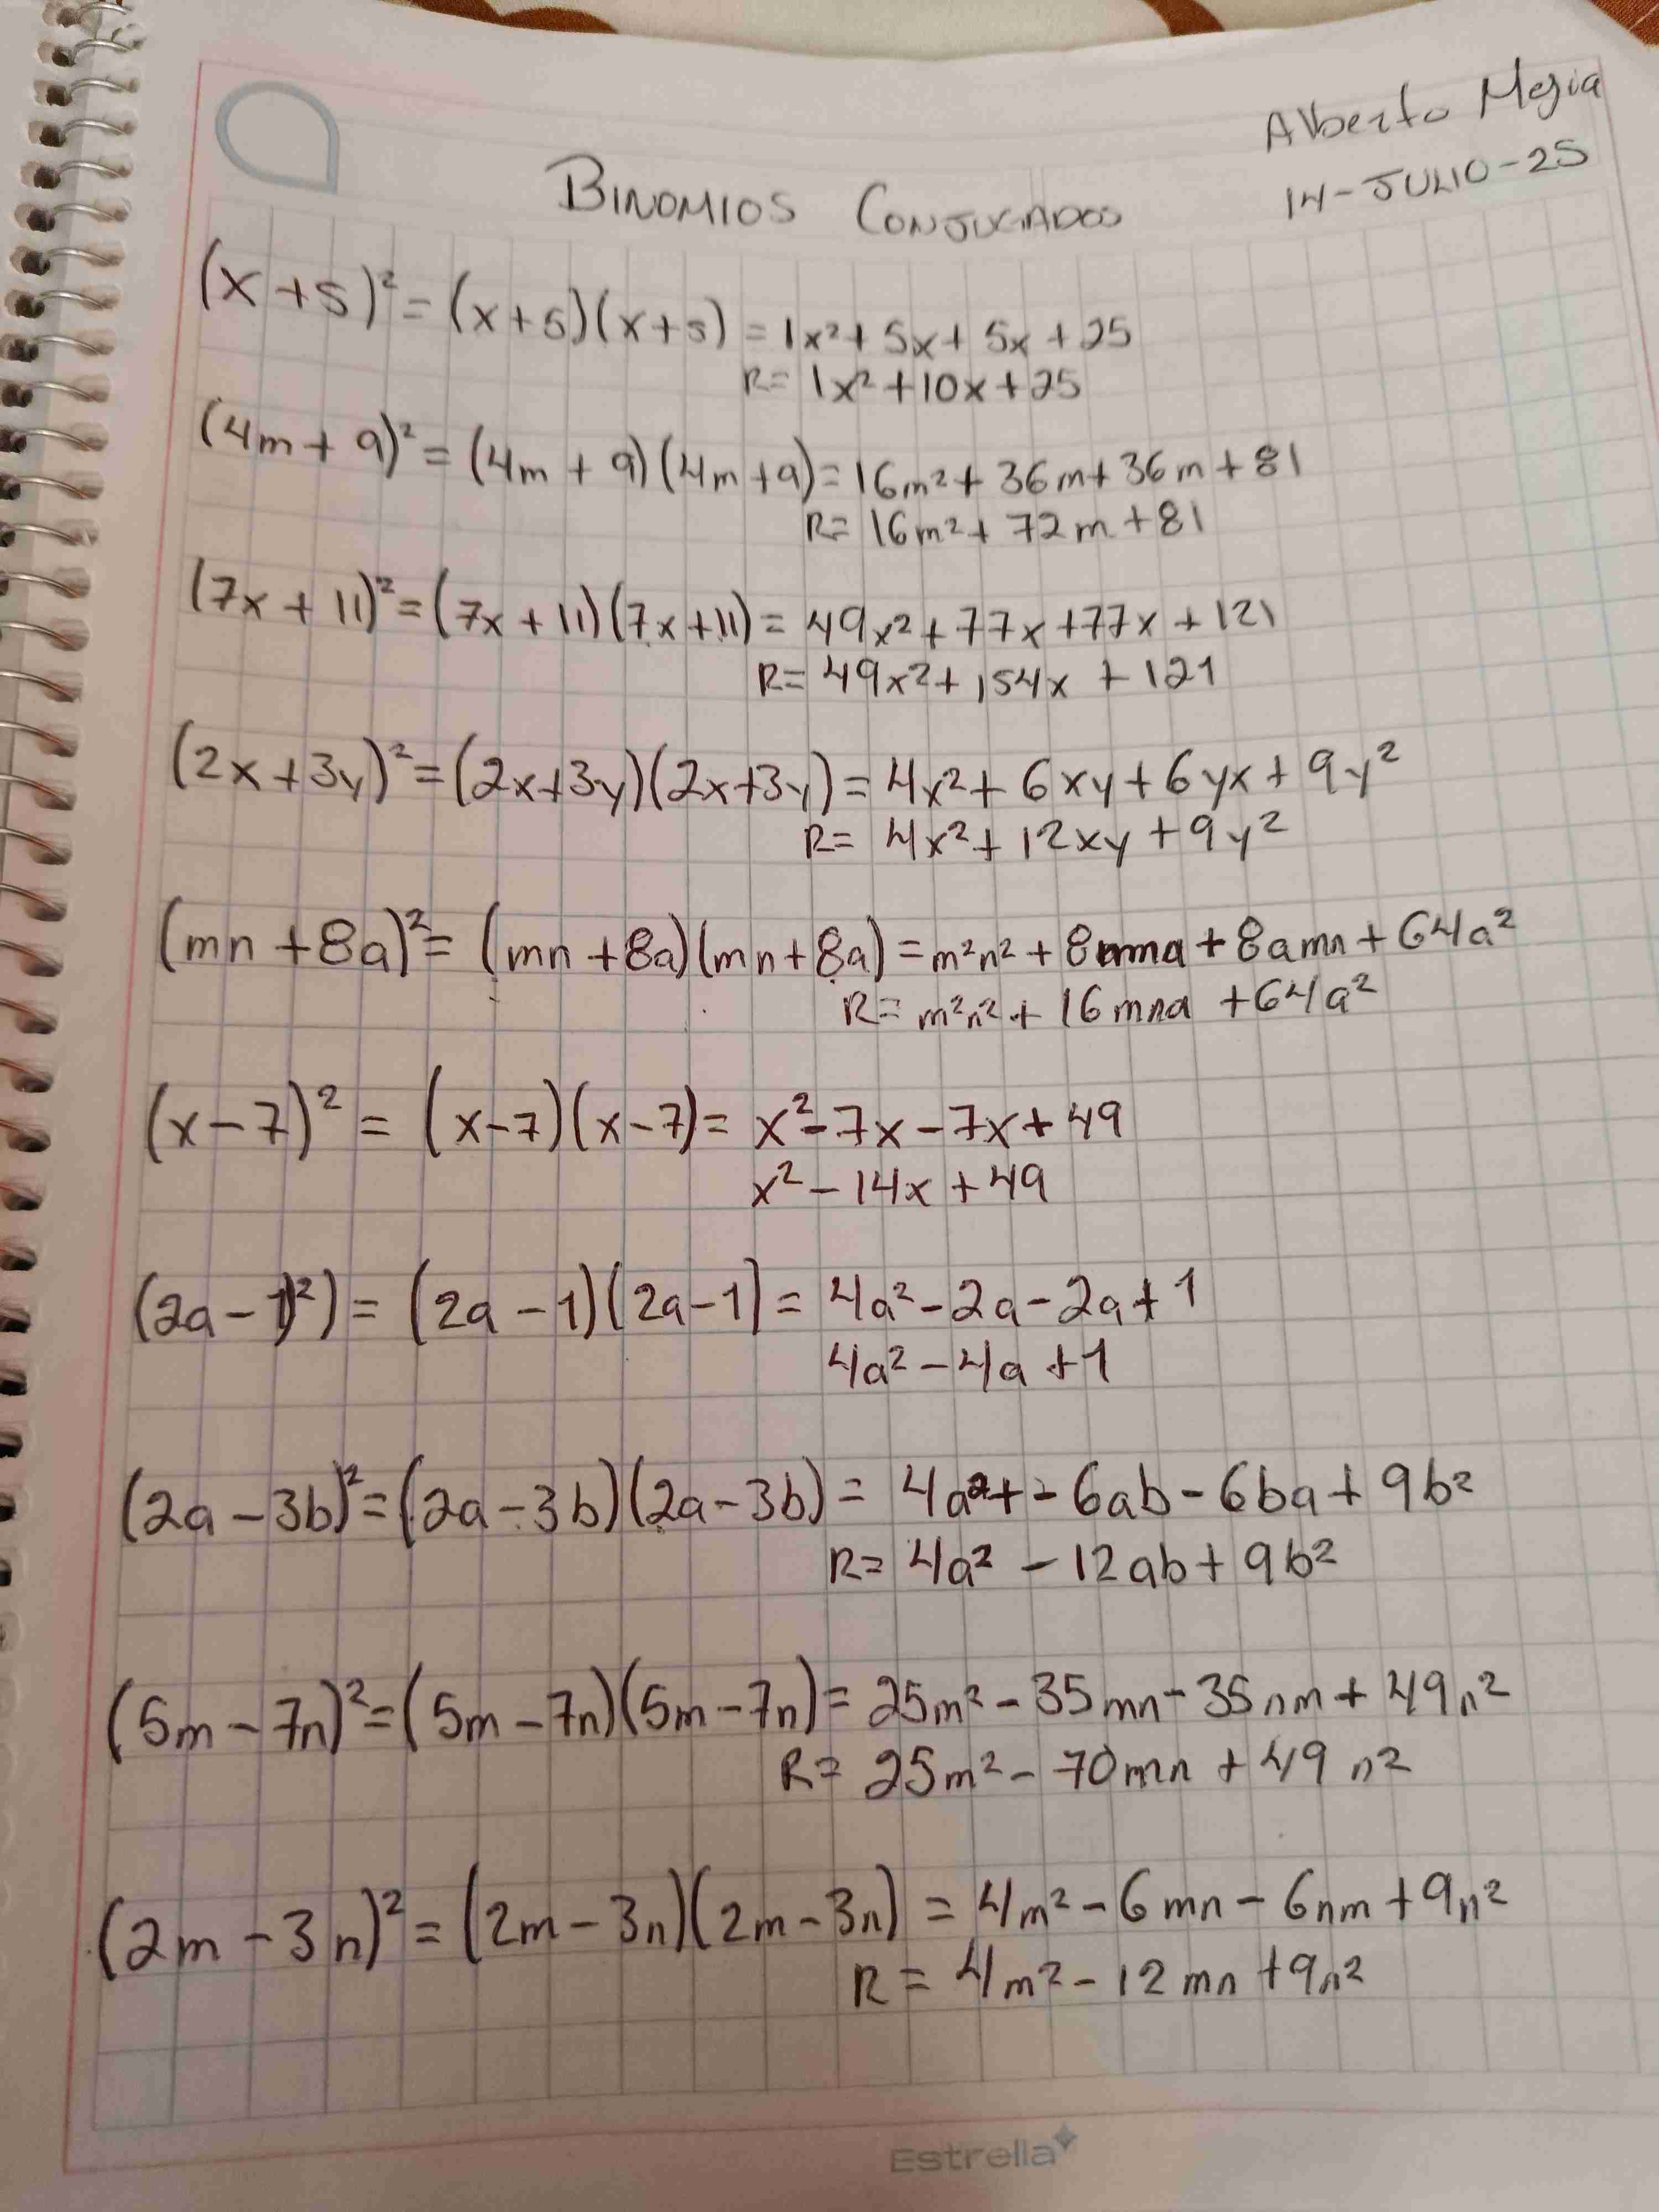 Alberto Mejia
14-JULIO-25
BINOMIOS CONJUGADOS
(x+5)² = (x+5)(x+5) = 1x²+5x+5x+25
R= 1x²+10x+25
(4m+9)² = (4m+9)(4m+9) = 16m²+36m+36m+81
R= 16m²+72m+81
(7x+11)² = (7x+11)(7x+11) = 49x²+77x+77x+121
R= 49x²+154x+121
(2x+3y)² = (2x+3y)(2x+3y) = 4x²+6xy+6yx+9y²
R= 4x²+12xy+9y²
(mn+8a)² = (mn+8a)(mn+8a) = m²n²+8mna+8amn+64a²
R= m²n²+16mna+64a²
(x-7)² = (x-7)(x-7) = x²-7x-7x+49
x²-14x+49
(2a-1)²) = (2a-1)(2a-1) = 4a²-2a-2a+1
4a²-4a+1
(2a-3b)² = (2a-3b)(2a-3b) = 4a²+-6ab-6ba+9b²
R= 4a²-12ab+9b²
(5m-7n)² = (5m-7n)(5m-7n) = 25m²-35mn-35nm+49n²
R= 25m²-70mn+49n²
(2m-3n)² = (2m-3n)(2m-3n) = 4m²-6mn-6nm+9n²
R= 4m²-12mn+9n²
Estrella